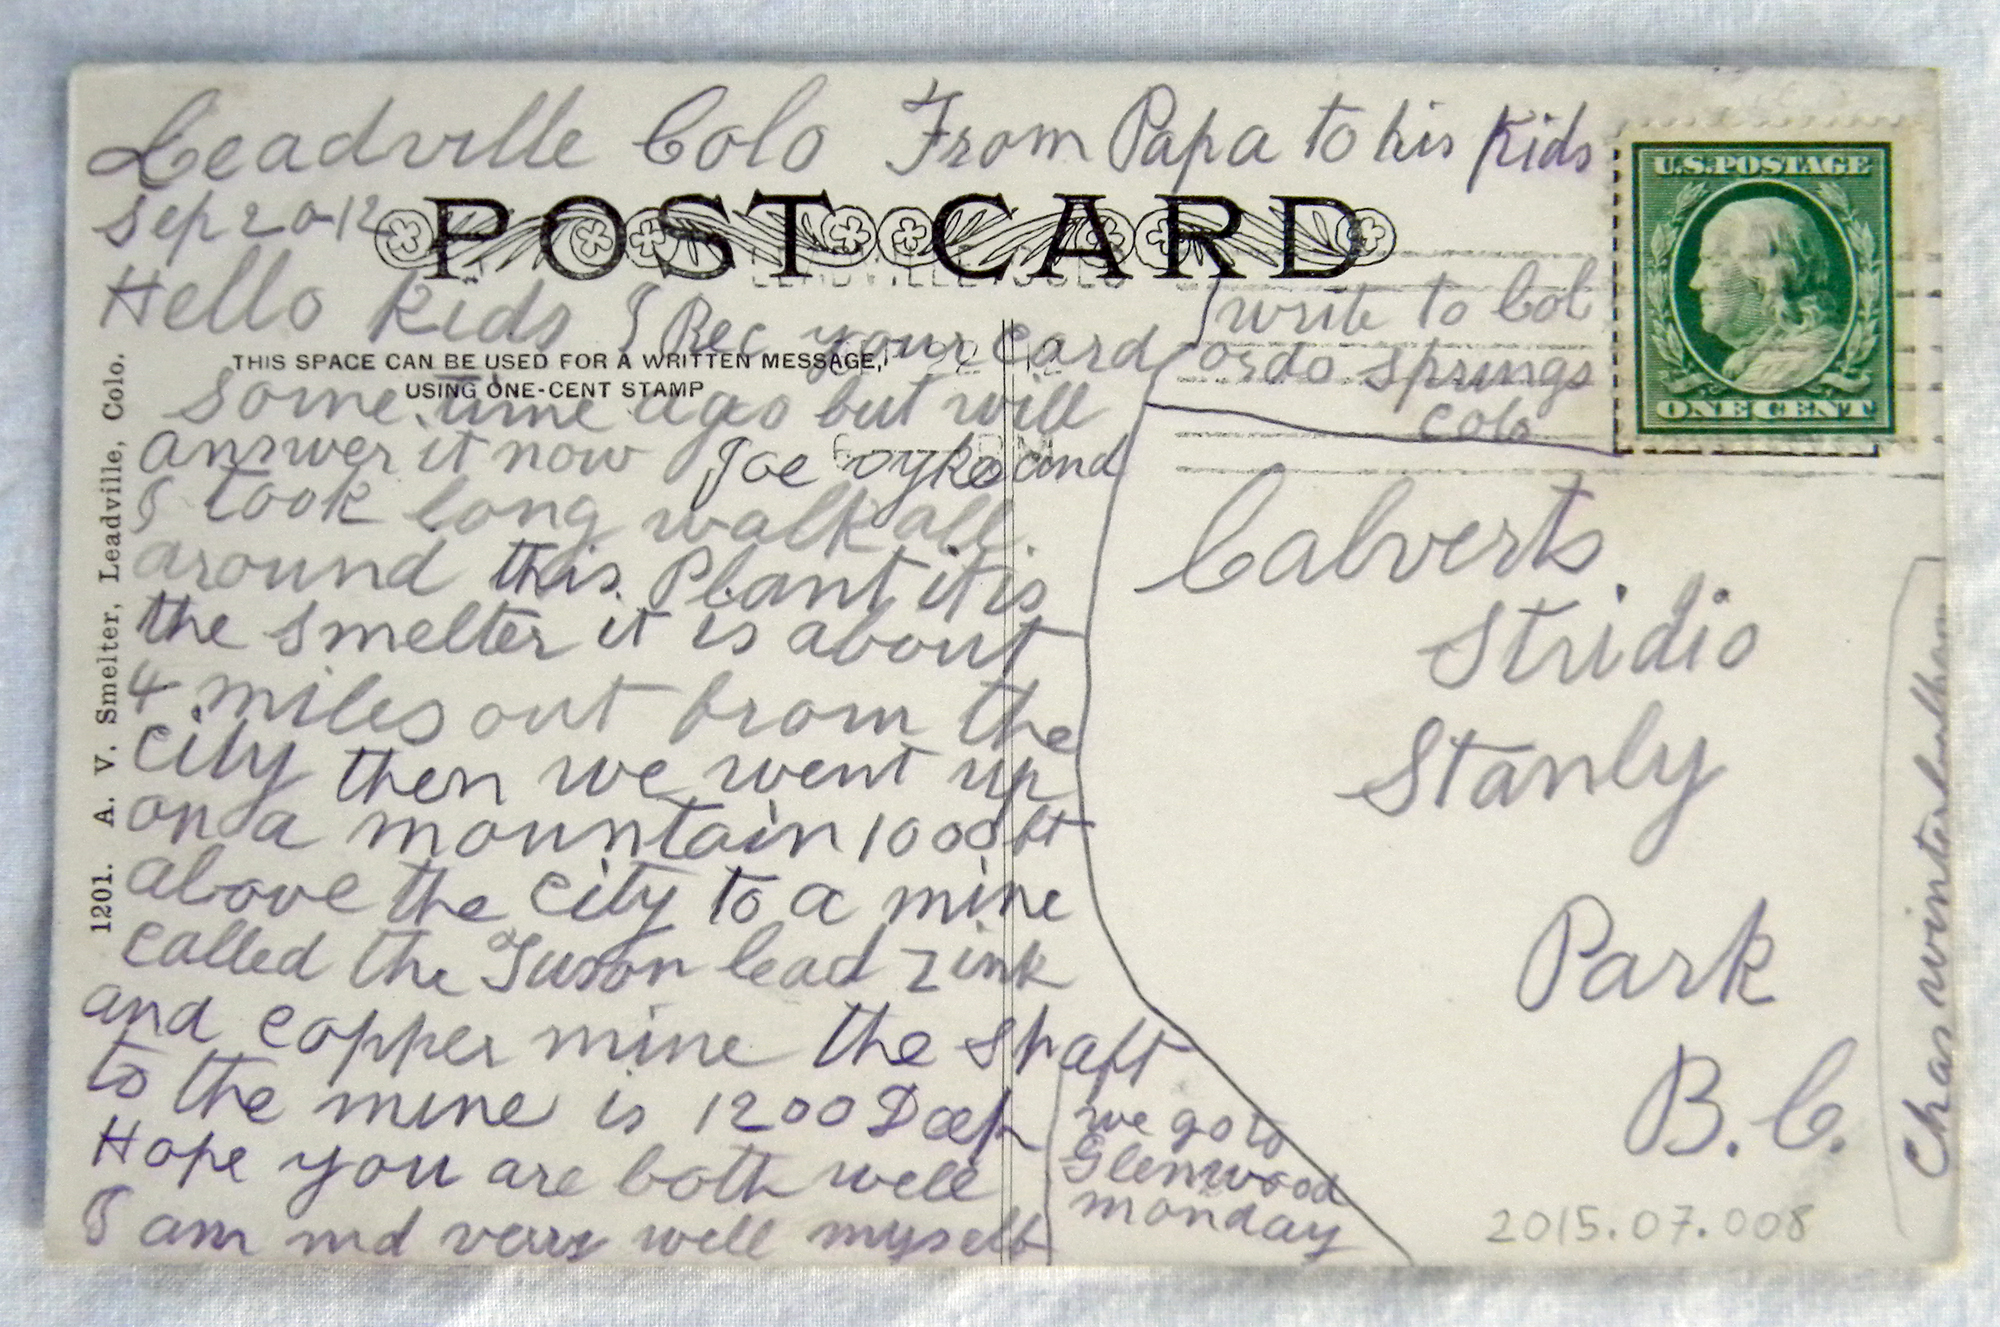 Leadville Colo From Papa to his Kids
Sep 20-12
POST CARD
Hello Kids I Rec your card
THIS SPACE CAN BE USED FOR A WRITTEN MESSAGE,
USING ONE-CENT STAMP
some time ago but will
answer it now Joe and
I took long walk all
around this Plant it is
the smelter it is about
4 miles out from the
city then we went up
on a mountain 1000 ft
above the city to a mine
called the lead zink
and copper mine the shaft
to the mine is 1200 Deep
Hope you are both well
I am very well myself
we go to
Glenwood
monday
1201. A. V. Smelter, Leadville, Colo.
LEADVILLE COLO
write to Col
orado springs
colo
U.S. POSTAGE
ONE CENT
Calverts
Stridio
Stanly
Park
B.C.
Chas
2015.07.008